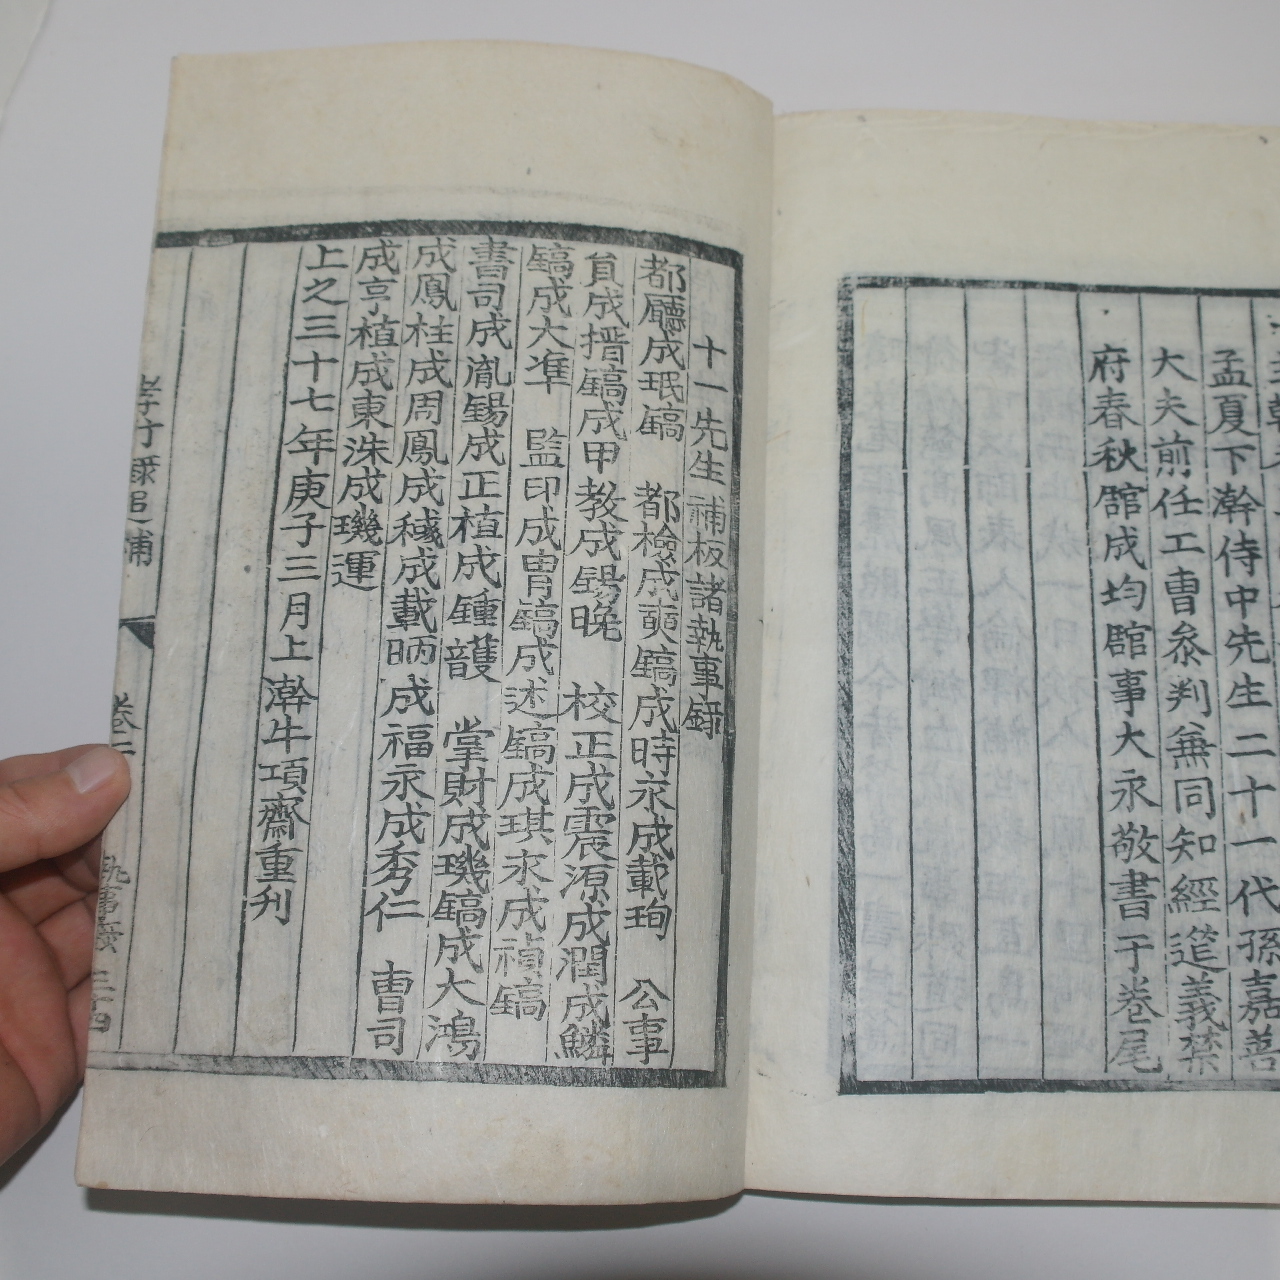 孟夏下澣侍中先生二十一代孫嘉善
大夫前任工曹叅判兼同知經筵義禁
府春秋館成均館事大永敬書于卷尾
十一先生補板諸執事錄
都廳成珉鎬 都檢成奭鎬成時永成載珣 公事
員成搢鎬成甲教成錫晚 校正成震源成潤成鱗
鎬成大準 監印成胄鎬成述鎬成琪永成禎鎬
書司成胤錫成正植成鍾頀 掌財成璣鎬成大鴻
成鳳柱成周鳳成稶成載昞成福永成秀仁 曹司
成亨植成東洙成璣運
上之三十七年庚子三月上澣牛項齋重刊
孝子錄追補 卷二 執事錄 三十四